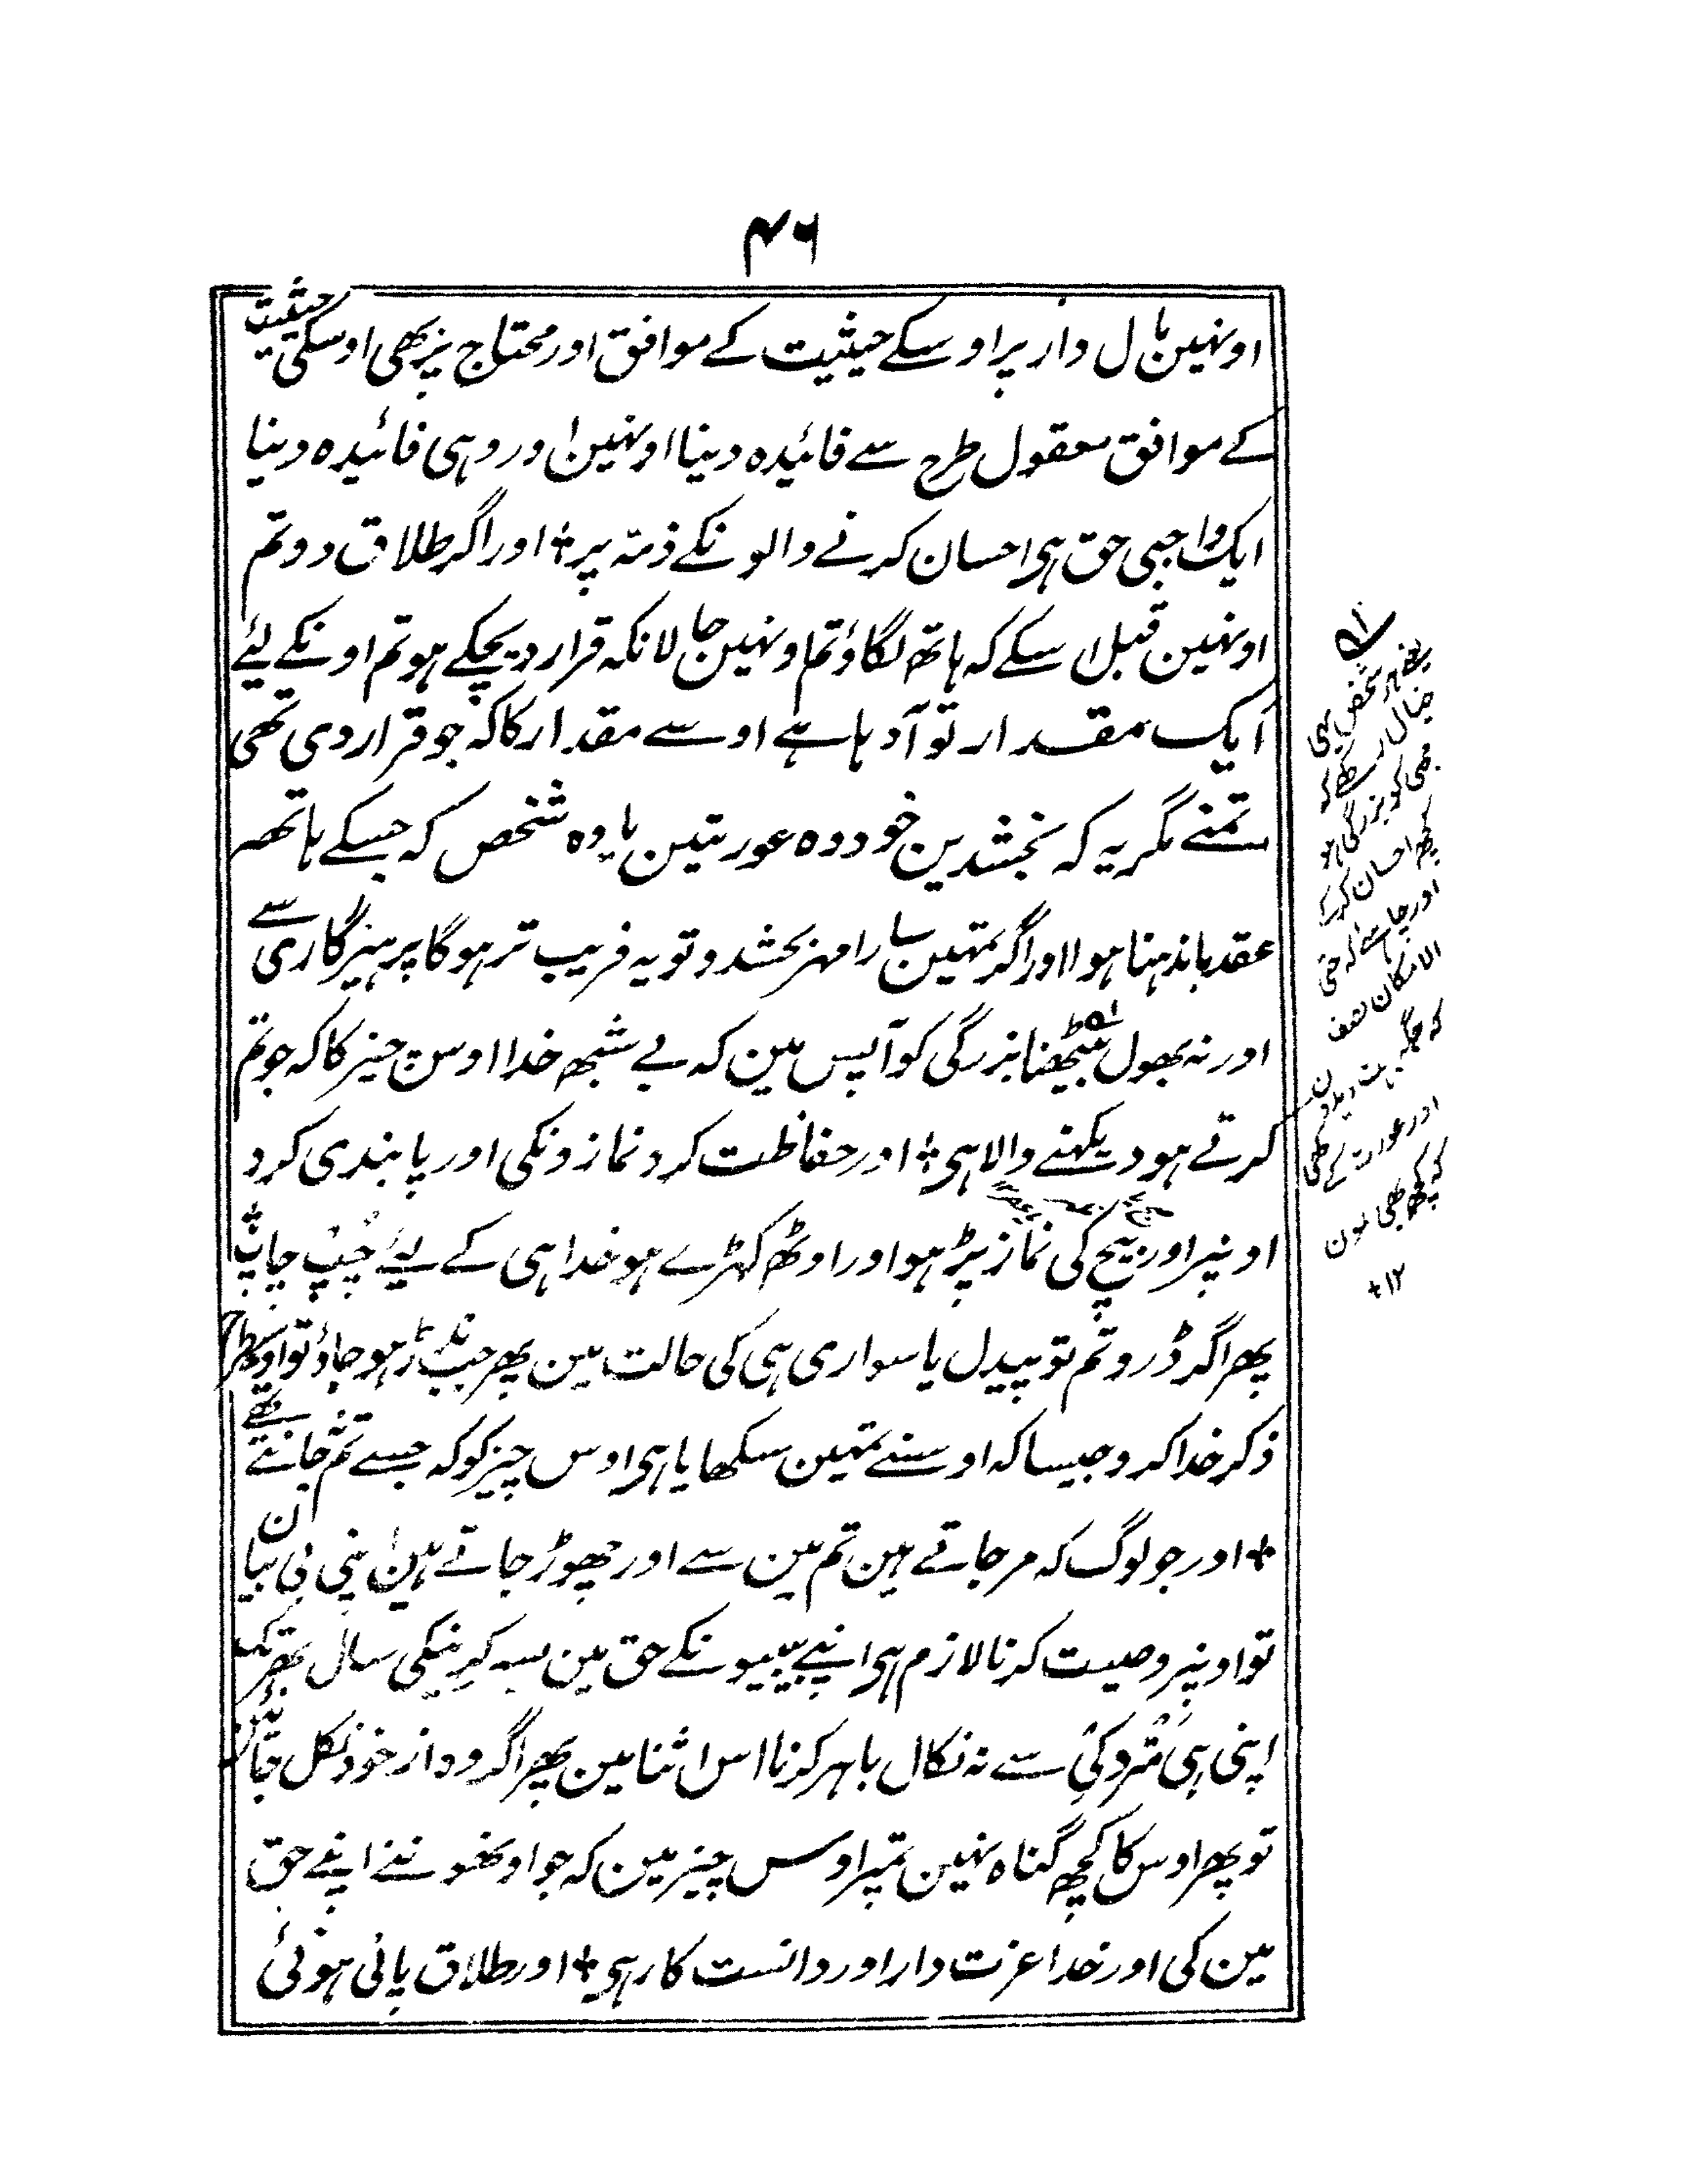 ۴۶
اونہین مال دار پر اوسکے حیثیت کے موافق اور محتاج پر بھی اوسکی حیثیت
کے موافق معقول طرح سے فائیدہ دینا اونہین اور وہی فائیدہ دینا
ایک واجبی حق ہی احسان کرنے والونکے ذمہ پر ÷ اور اگر طلاق دو تم
اونہین قبل اسکے کہ ہاتھ لگاؤ تم اونہین حالانکہ قرار دیچکے ہو تم اونکے لئے
ایک مقدار تو آدہا ہے اوسے مقدار کا کہ جو قرار دی تھی
تمنے مگر یہ کہ بخشدین خود وہ عورتین یا وہ شخص کہ جسکے ہاتھ
عقد باندہنا ہوا اور اگر تمہین سارا مہر بخشدو تو یہ قریب تر ہوگا پرہیزگاری سے
اور نہ بھول بیٹھنا بزرگی کو آپس مین کہ بے شبھ خدا اوس چیز کا کہ جو تم
کرتے ہو دیکہنے والا ہی ÷ اور حفاظت کرو نمازونکی اور پابندی کرو
اونپر اور بیچ کی نماز پڑہو اور اوٹھ کہڑے ہو خدا ہی کے لیے چُپ چاپ
پھر اگر ڈرو تم تو پیدل یا سواری ہی کی حالت مین پھر جب نڈر ہو جاؤ تو اوسطرح
ذکر خدا کرو جیسا کہ اوسنے تمہین سکھایا ہی اوس چیز کو کہ جسے تم نہ جانتے تھے
÷ اور جو لوگ کہ مر جاتے ہین تم مین سے اور چھوڑ جاتے ہین اپنی بی بیان
تو اونپر وصیت کرنا لازم ہی اپنے بیبیونکے حق مین بسر کرنیکی سال بھر تک
اپنی ہی متروکی سے نہ نکال باہر کرنا اس اثنا مین پھر اگر وہ از خود نکل جائین
تو پھر اوس کا کچھ گناہ نہین تمپر اوس چیز مین کہ جو اونھونے اپنے حق
مین کی اور خدا عزت دار اور دانست کار ہی ÷ اور طلاق پائی ہوئی
یعنے ہر شخص یہی
خیال رکھے کہ
مجھی کو بزرگی ہو
کچھ احسان کرکے
اور چاہئے کہ حتی
الامکان
۱۲ ÷